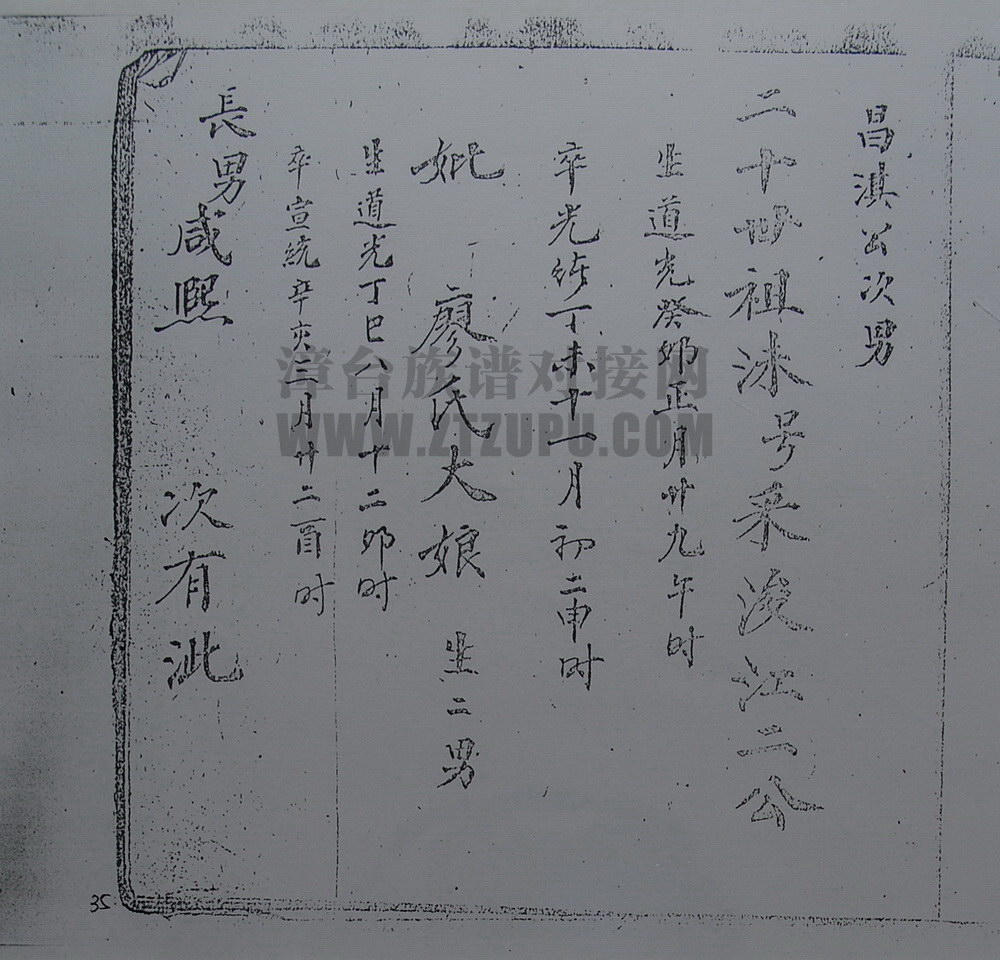 昌淇公次男
二十世祖沐号采浚江二公
生道光癸卯正月廿九午时
卒光绪丁未十一月初二申时
妣 廖氏大娘 生二男
生道光丁巳八月十二卯时
卒宣統辛亥三月廿二酉时
長男咸熙 次有沘
漳台族谱对接网
WWW.ZTZUPU.COM
35